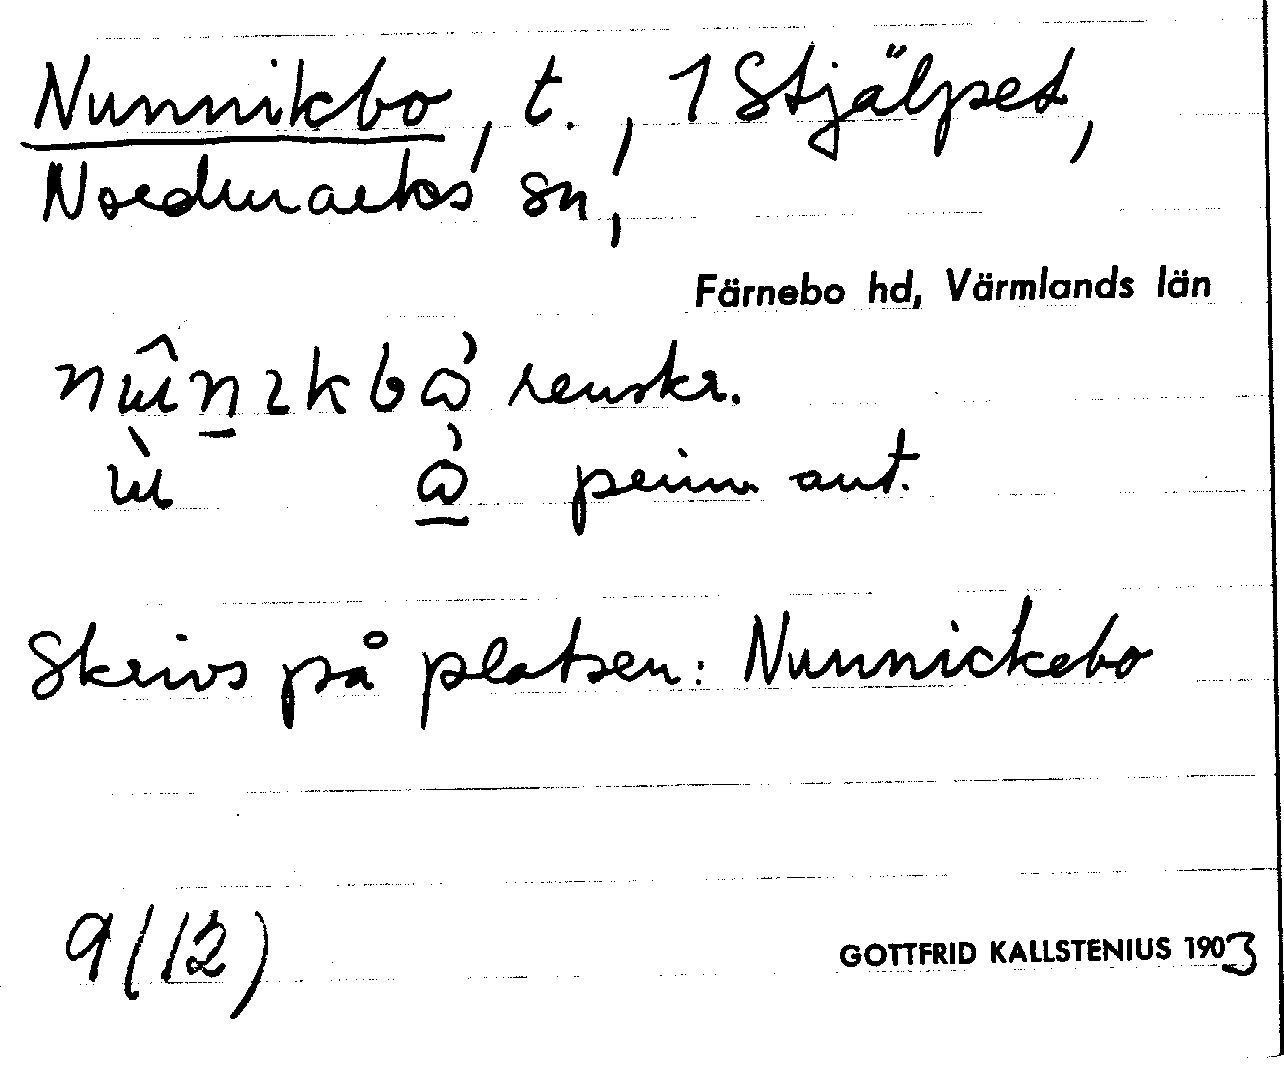 Nunnikbo, t., 1 Stjälpet,
Nordmarks sn,
Färnebo hd, Värmlands län
renskr.
prim. ant.
Skrivs på platsen: Nunnickebo
9 (12)
GOTTFRID KALLSTENIUS 1903